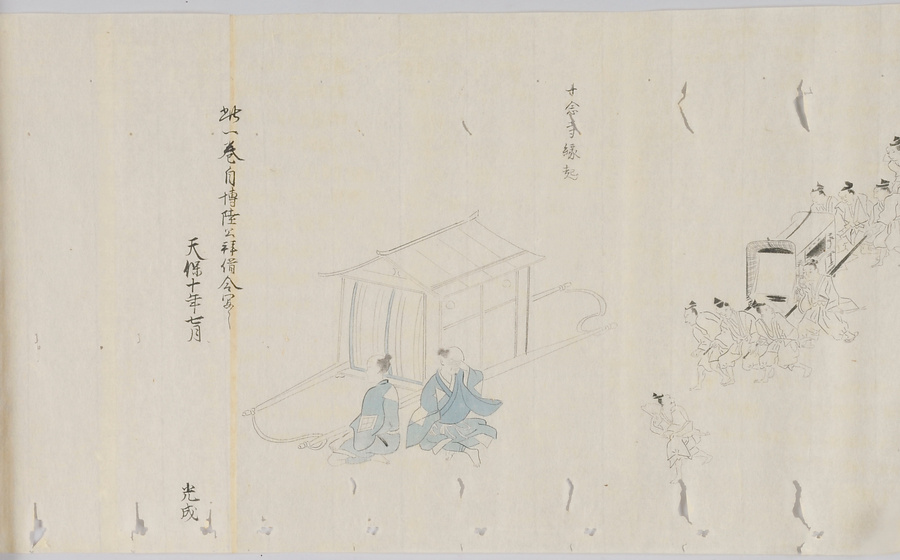 廾念寺縁起
此一巻自博陸公拝借令写之
天保十年七月
光成